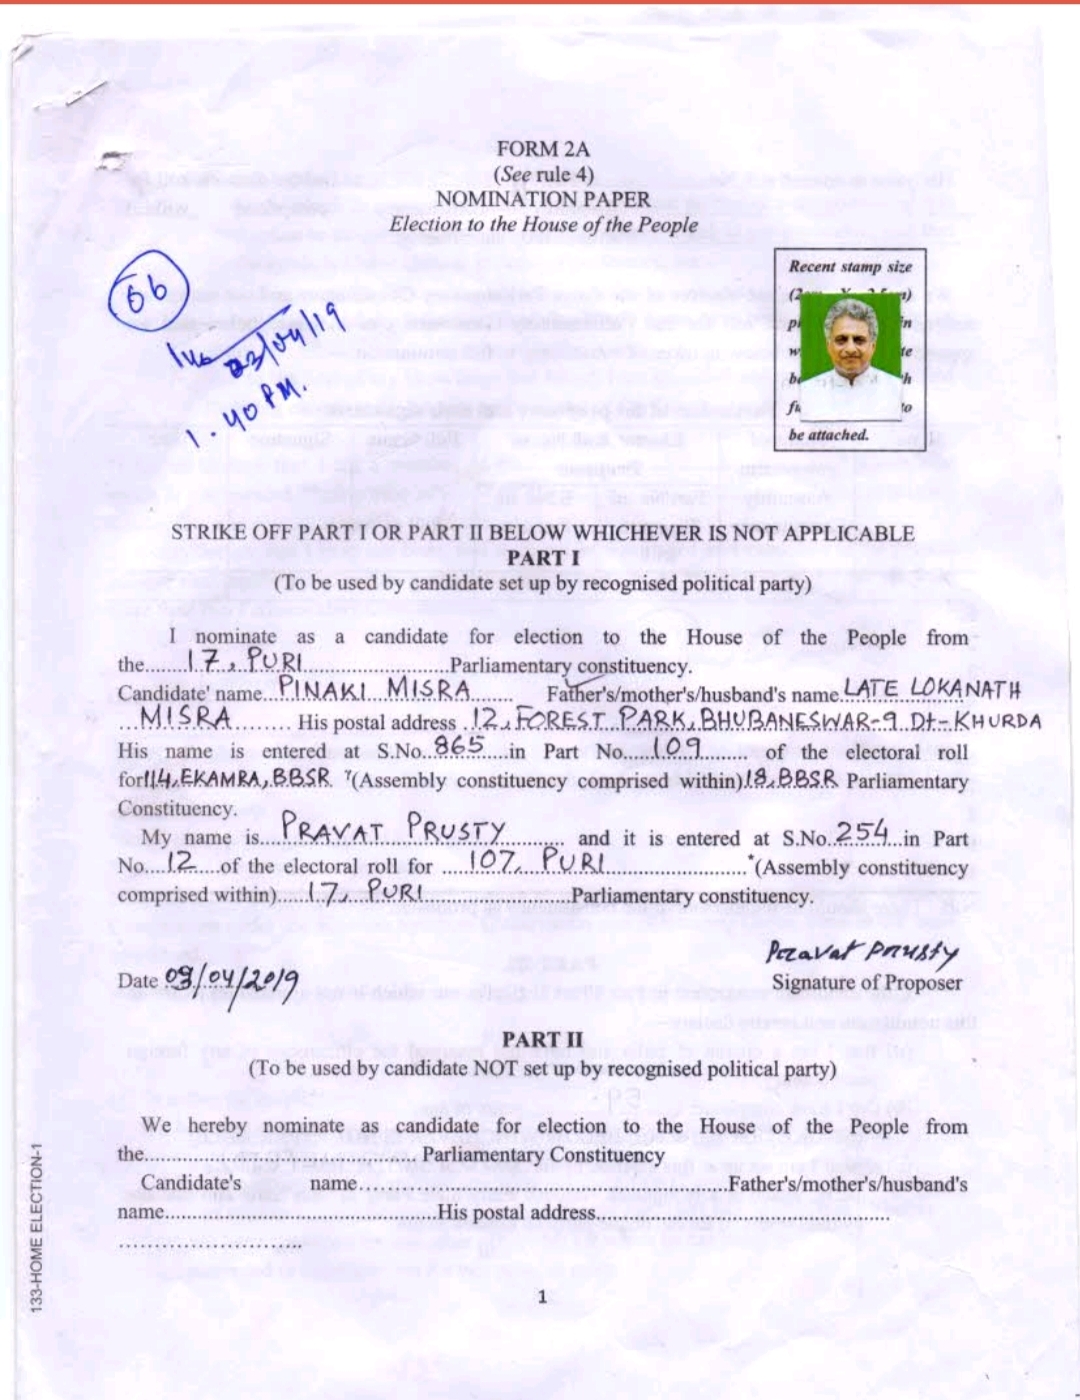 FORM 2A
(See rule 4)
NOMINATION PAPER
Election to the House of the People
66
03/04/19
1.40 PM.
Recent stamp size
be attached.
STRIKE OFF PART I OR PART II BELOW WHICHEVER IS NOT APPLICABLE
PART I
(To be used by candidate set up by recognised political party)
I nominate as a candidate for election to the House of the People from
the......17, PURI........................Parliamentary constituency.
Candidate' name...PINAKI MISRA....... Father's/mother's/husband's name LATE LOKANATH
MISRA......... His postal address .12, FOREST PARK, BHUBANESWAR-9 Dt-KHURDA
His name is entered at S.No. 865 ....in Part No....109.......... of the electoral roll
for 114, EKAMRA, BBSR (Assembly constituency comprised within) 18, BBSR Parliamentary
Constituency.
My name is....PRAVAT PRUSTY......... and it is entered at S.No. 254 ..in Part
No....12....of the electoral roll for ....107, PURI........................*(Assembly constituency
comprised within).....17, PURI........................Parliamentary constituency.
Pravat Prusty
Date 03/04/2019
Signature of Proposer
PART II
(To be used by candidate NOT set up by recognised political party)
We hereby nominate as candidate for election to the House of the People from
the.............................................Parliamentary Constituency
Candidate's name............................................................Father's/mother's/husband's
name............................................His postal address...............................................
..............................
133-HOME ELECTION-1
1